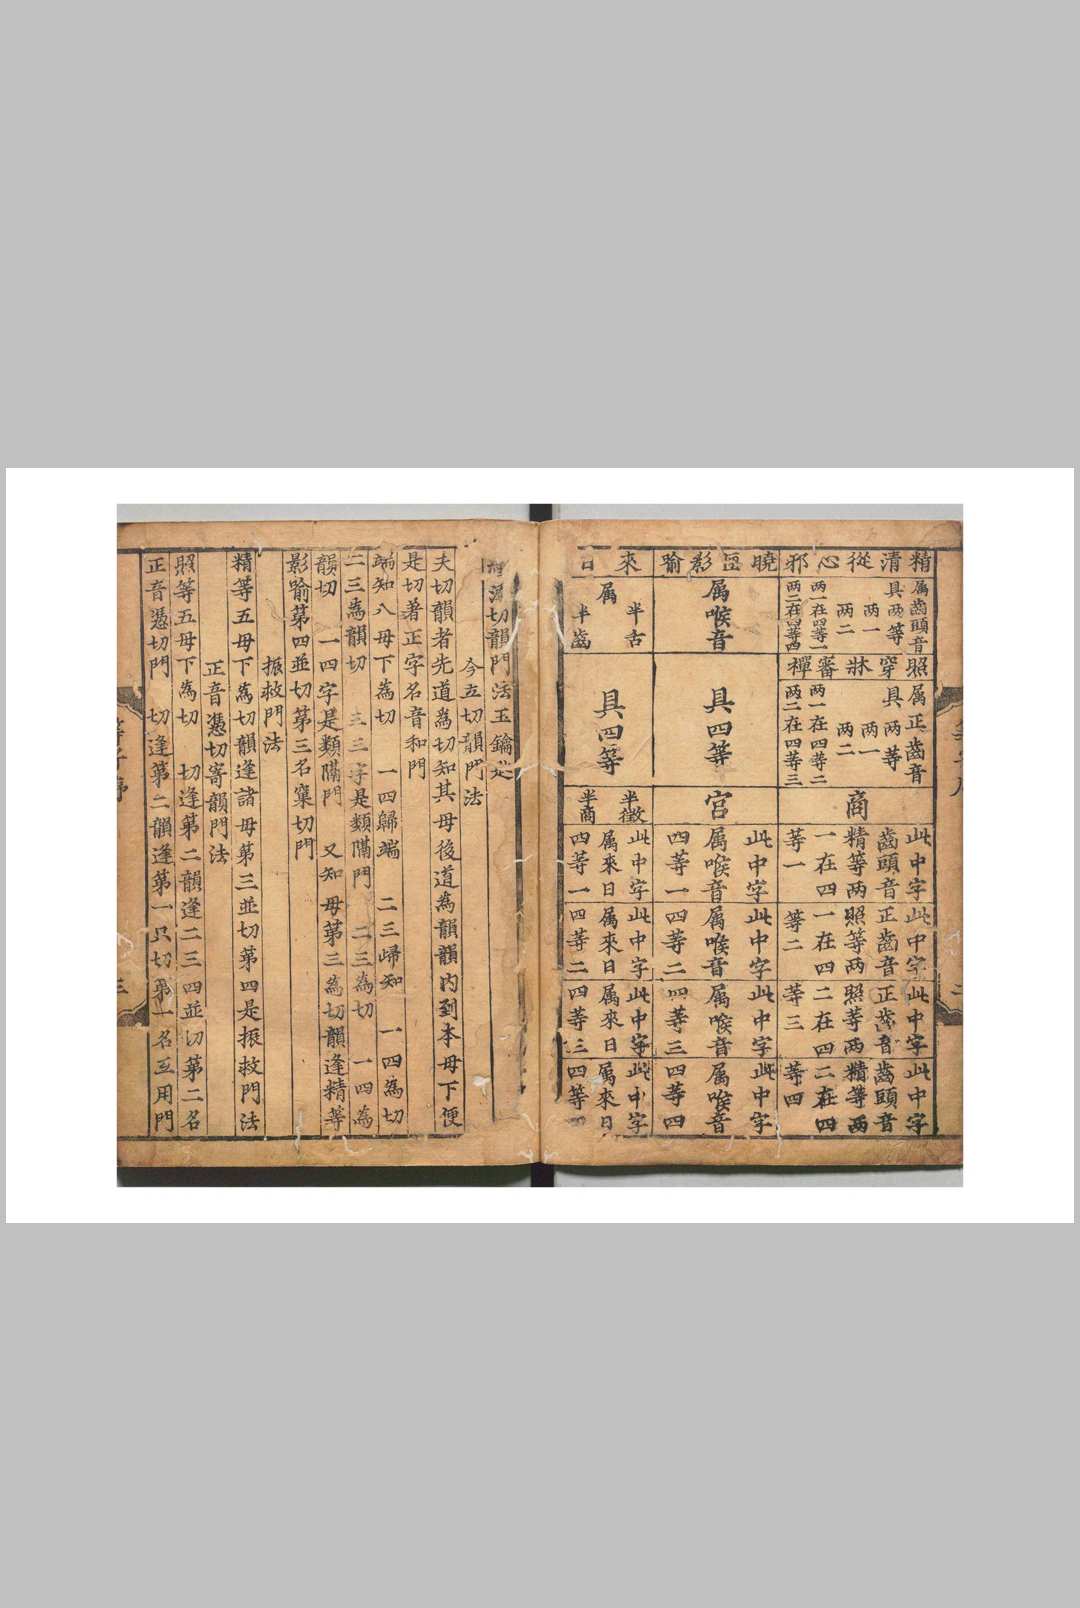 精清從心邪
属齒頭音
具两等
两一
两二
两一在四等一
两二在四等四
照穿牀審禪
属正齒音
具两等
两一
两二
两一在四等二
两二在四等三
商
此中字
齒頭音
精等两
一在四
等一
此中字
正齒音
照等两
一在四
等二
此中字
正齒音
照等两
二在四
等三
此中字
齒頭音
精等两
二在四
等四
曉匣影喻
属喉音
具四等
宮
此中字
属喉音
四等一
此中字
属喉音
四等二
此中字
属喉音
四等三
此中字
属喉音
四等四
來日
半舌
属
半齒
具四等
半徵
半商
此中字
属來日
四等一
此中字
属來日
四等二
此中字
属來日
四等三
此中字
属來日
四等
切韻門法玉鑰匙
今立切韻門法
夫切韻者先道爲切知其母後道爲韻韻内到本母下便
是切著正字名音和門
端知八母下爲切 一四歸端 二三歸知 一四爲切
二三爲韻切 三字是類隔門 二三爲切 一四爲
韻切 一四字是類隔門 又知母第三爲切韻逢精等
影喻第四並切第三名窠切門
振救門法
精等五母下爲切韻逢諸母第三並切第四是振救門法
正音憑切寄韻門法
照等五母下爲切 切逢第二韻逢二三四並切第二名
正音憑切門 切逢第二韻逢第一只切第一名互用門